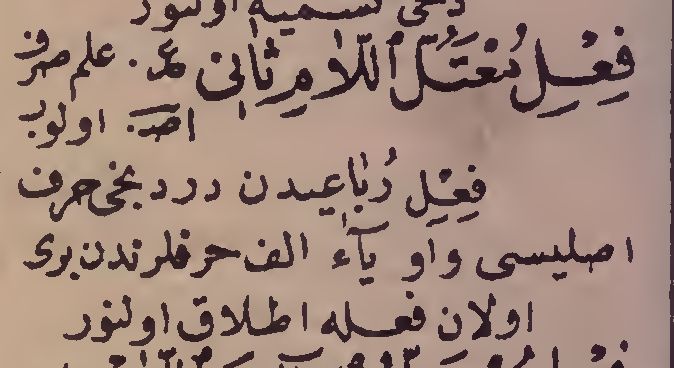 دخی تسمیه اولنور
فِعْلِ مُعْتَلُّ ٱللَّامِ ثانی عر. علم صرف
اصـ. اولوب
فِعْلِ رُباعیدن دردنجی حرف
اصلیسی واو یآء الف حرفلرندن بری
اولان فعله اطلاق اولنور